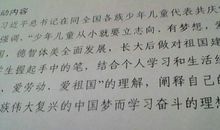 动内容
习近平总书记在同全国各族少年儿童代表共庆
强调，“少年儿童从小就要立志向，有梦想，
国，德智体美全面发展，长大后做对祖国建
学生握起手中的笔，结合个人学习和生活
、爱劳动、爱祖国”的理解，阐释自己的
族伟大复兴的中国梦而学习奋斗的理